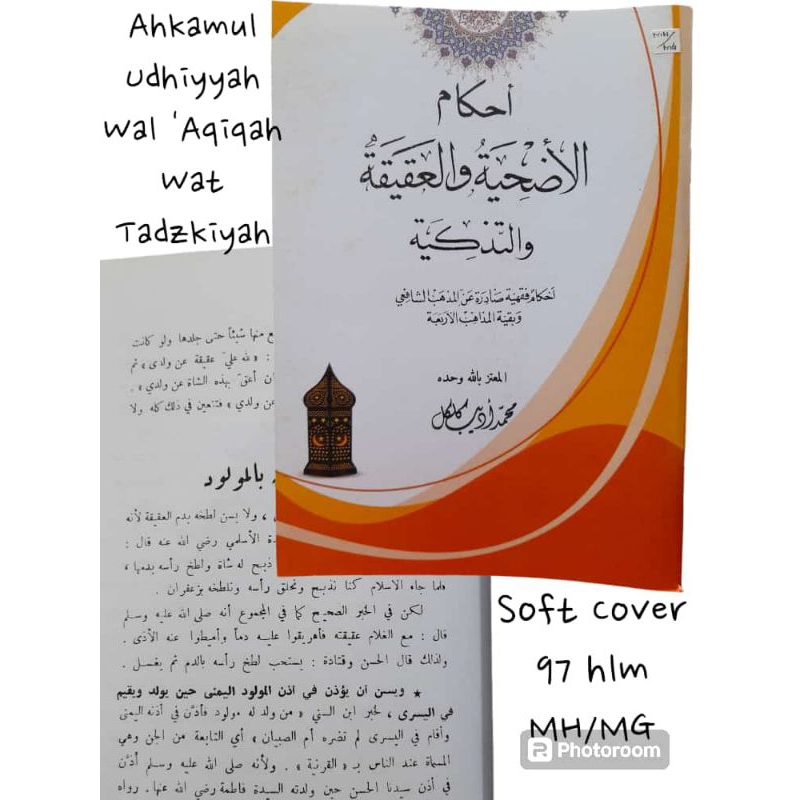 Ahkamul
Udhiyyah
wal 'Aqiqah
wat
Tadzkiyah
أحكام
الأضحية والعقيقة
والتذكية
أحكام فقهية صادرة عن المذهب الشافعي
وبقية المذاهب الأربعة
المعتز بالله وحده
محمد أديب كلكل
منها شيئاً حتى جلدها ولو كانت
: « لله عليّ عقيقة عن ولدي » ثم
أعقّ بهذه الشاة عن ولدي » .
عن ولدي » فتتعين في ذلك كله ولا
بالمولود
، ولا يسن لطخه بدم العقيقة لأنه
الأسلمي رضي الله عنه قال :
ذبح له شاة ولطخ رأسه بدمها ،
فلما جاء الاسلام كنا نذبح ونحلق رأسه ونلطخه بزعفران .
لكن في الخبر الصحيح كما في المجموع أنه صلى الله عليه وسلم
قال : مع الغلام عقيقته فأهريقوا عليه دماً وأميطوا عنه الأذى .
ولذلك قال الحسن وقتادة : يستحب لطخ رأسه بالدم ثم يغسل .
★ ويسن أن يؤذن في أذن المولود اليمنى حين يولد ويقيم
في اليسرى ، لخبر ابن السني « من ولد له مولود فأذّن في أذنه اليمنى
وأقام في اليسرى لم تضره أم الصبيان » أي التابعة من الجن وهي
المسماة عند الناس بـ « القرنية » . ولأنه صلى الله عليه وسلم أذّن
في أذن سيدنا الحسن حين ولدته السيدة فاطمة رضي الله عنها . رواه
Soft cover
97 hlm
MH/MG
Photoroom